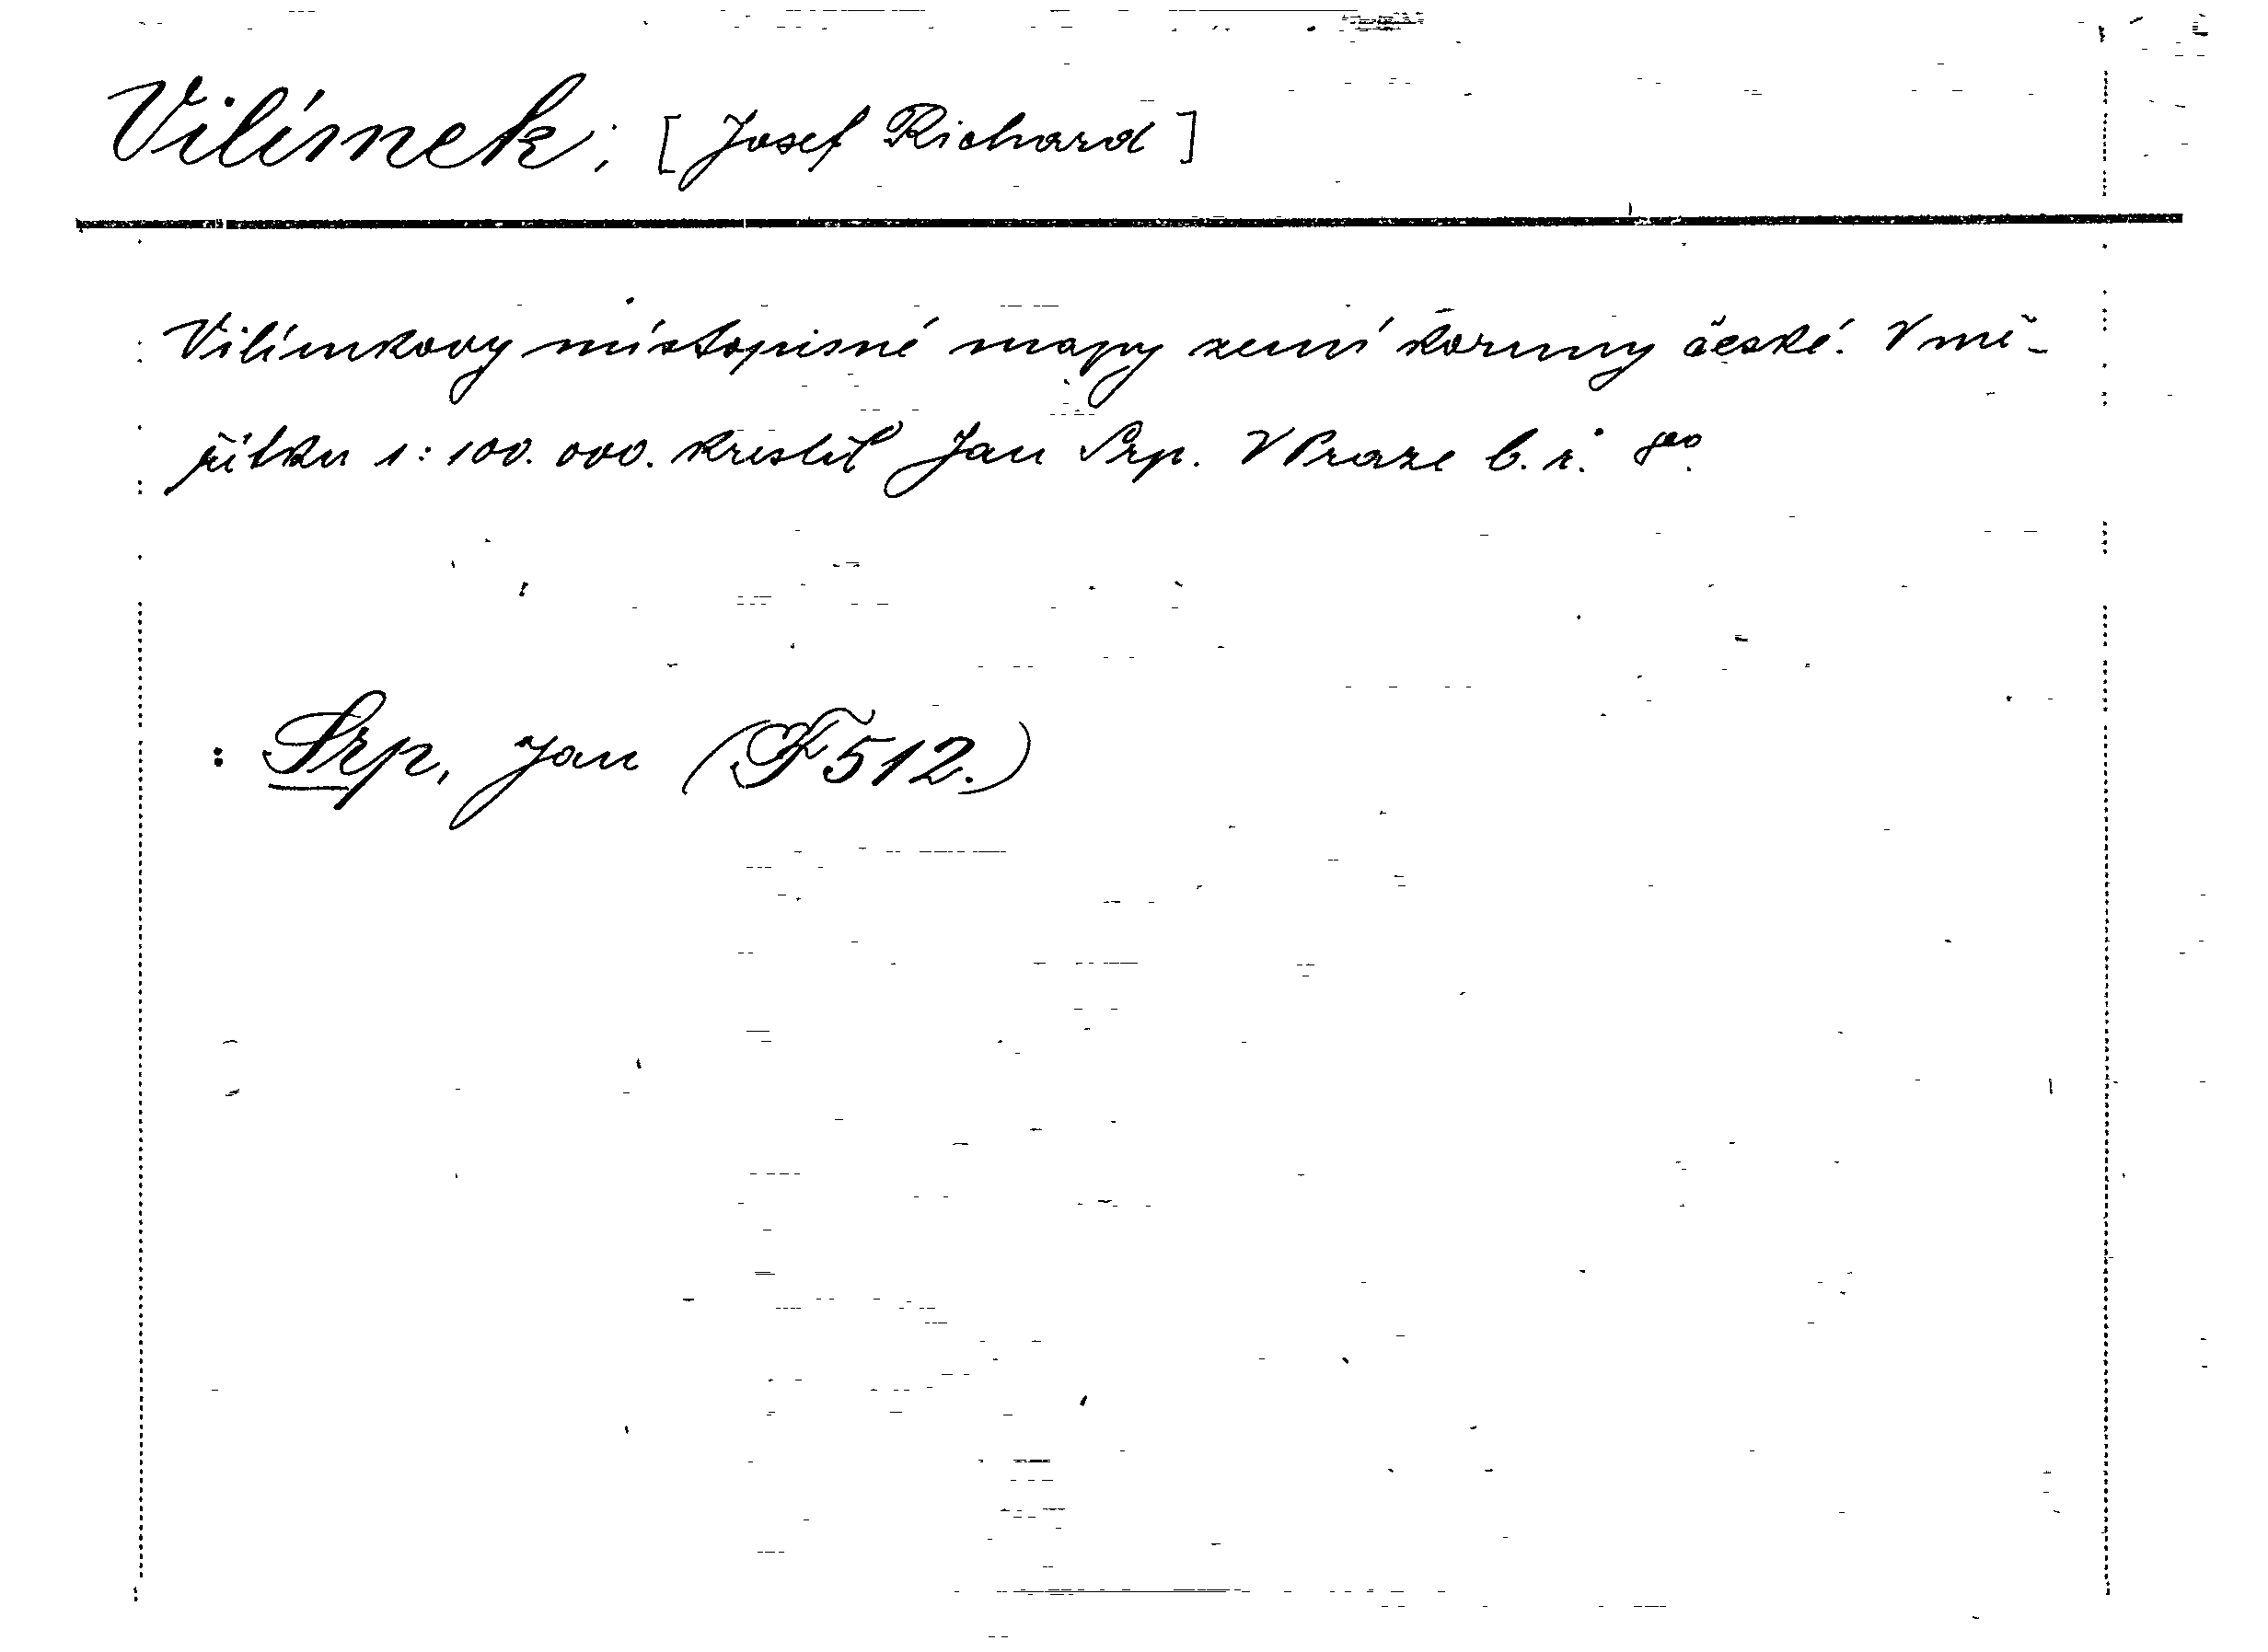 Vilímek; [Josef Richard]
Vilímkovy místopisné mapy zemí koruny české. V mě-
řítku 1:100.000. kreslil Jan Srp. V Praze b. r. 8º.
: Srp, Jan (F 512.)